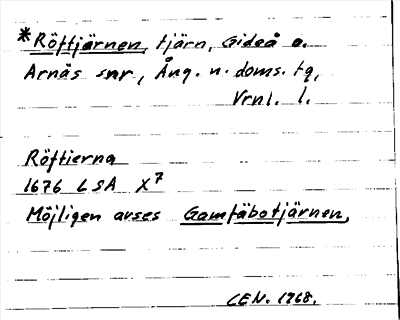 *Röftjärnen, tjärn, Gideå o.
Arnäs snr, Ång. n. doms. tg,
Vrnl. l.
Röftierna
1676 LSA X7
Möjligen avses Gamfäbotjärnen,
CEN. 1968.